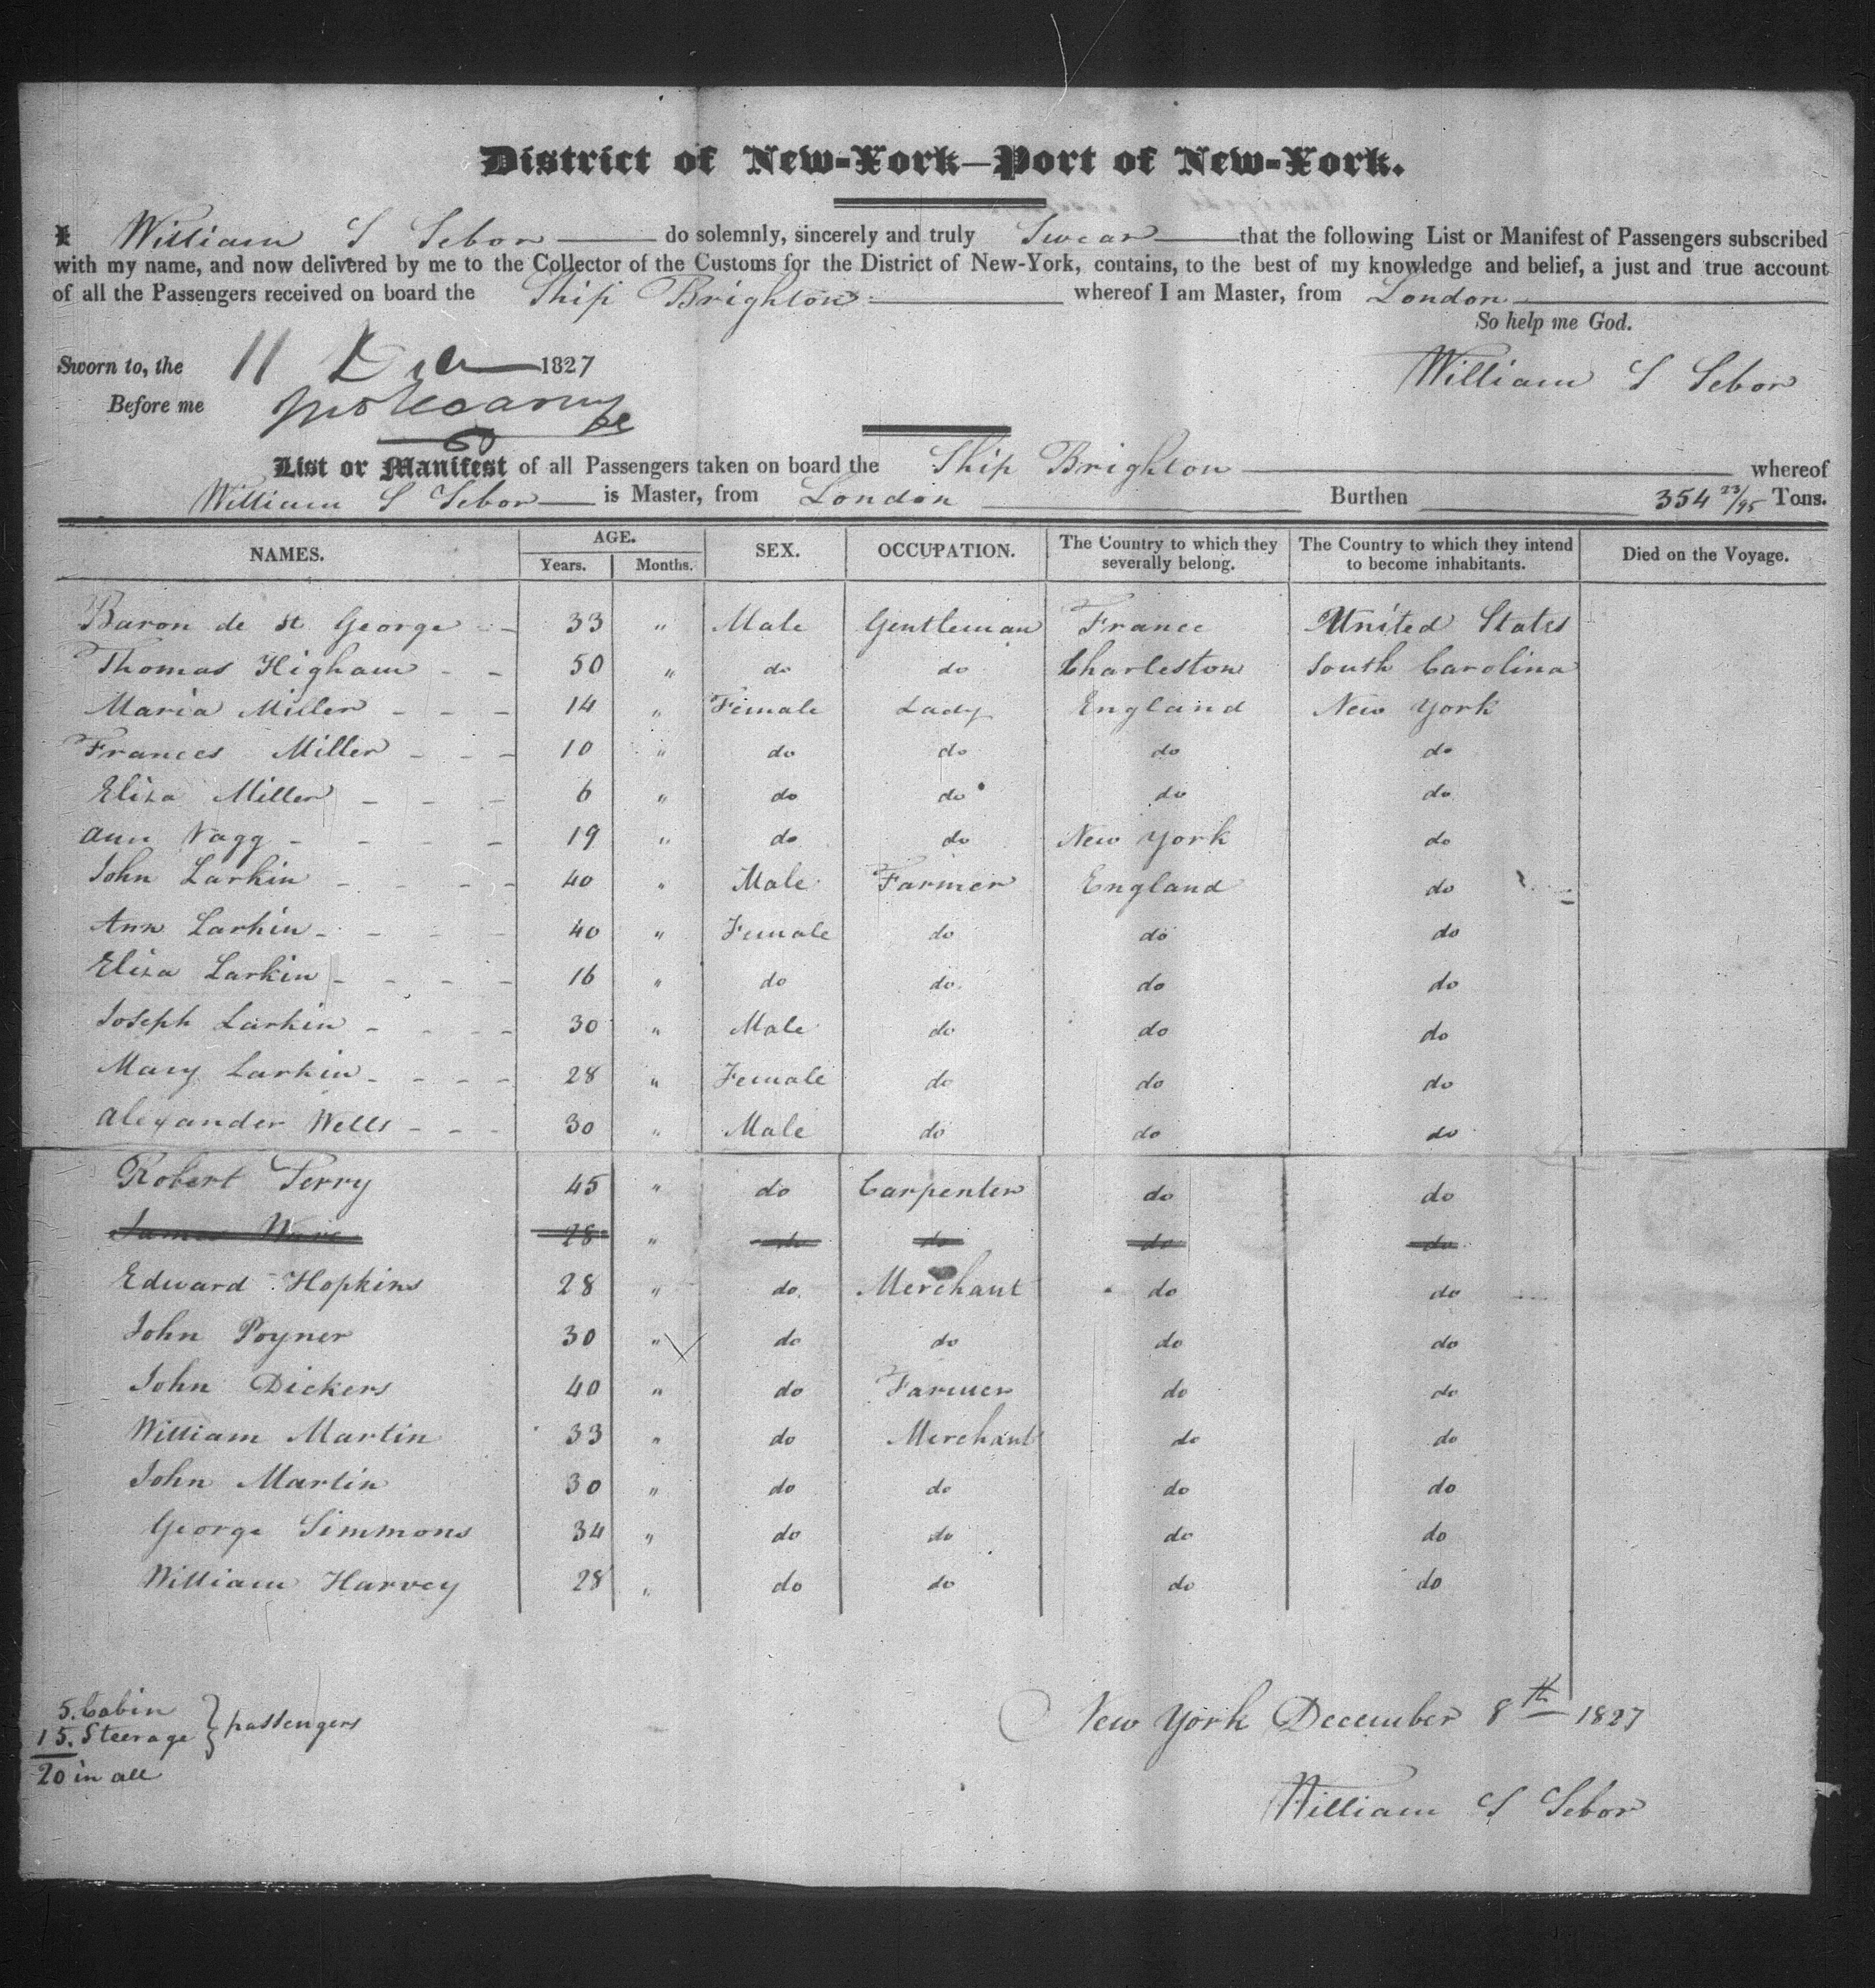 District of New-York—Port of New-York.
I William S Sebor do solemnly, sincerely and truly Swear that the following List or Manifest of Passengers subscribed
with my name, and now delivered by me to the Collector of the Customs for the District of New-York, contains, to the best of my knowledge and belief, a just and true account
of all the Passengers received on board the Ship Brighton whereof I am Master, from London
So help me God.
Sworn to, the 11 Dec 1827
William S Sebor
Before me
List or Manifest of all Passengers taken on board the Ship Brighton whereof
William S Sebor is Master, from London Burthen 354 23/95 Tons.
NAMES. AGE. Years. Months. SEX. OCCUPATION. The Country to which they severally belong. The Country to which they intend to become inhabitants. Died on the Voyage.
Baron de St George - - 33 " Male Gentleman France United States
Thomas Higham - - 50 " do do Charleston South Carolina
Maria Miller - - - 14 " Female Lady England New York
Frances Miller - - - 10 " do do do do
Eliza Miller - - - 6 " do do do do
Ann Vagg - - - - 19 " do do New York do
John Larkin - - - - 40 " Male Farmer England do
Ann Larkin - - - - 40 " Female do do do
Eliza Larkin - - - - 16 " do do do do
Joseph Larkin - - - - 30 " Male do do do
Mary Larkin - - - - 28 " Female do do do
Alexander Wells - - - 30 " Male do do do
Robert Perry 45 " do Carpenter do do
James 28 " do do do do
Edward Hopkins 28 " do Merchant do do
John Poyner 30 " do do do do
John Dickers 40 " do Farmer do do
William Martin 33 " do Merchant do do
John Martin 30 " do do do do
George Simmons 34 " do do do do
William Harvey 28 " do do do do
5. Cabin
15. Steerage } passengers
20 in all
New York December 8th 1827
William S Sebor